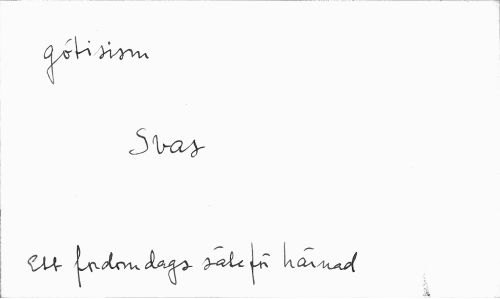 götisism
Svas
Ett fordomdags säte för härnad